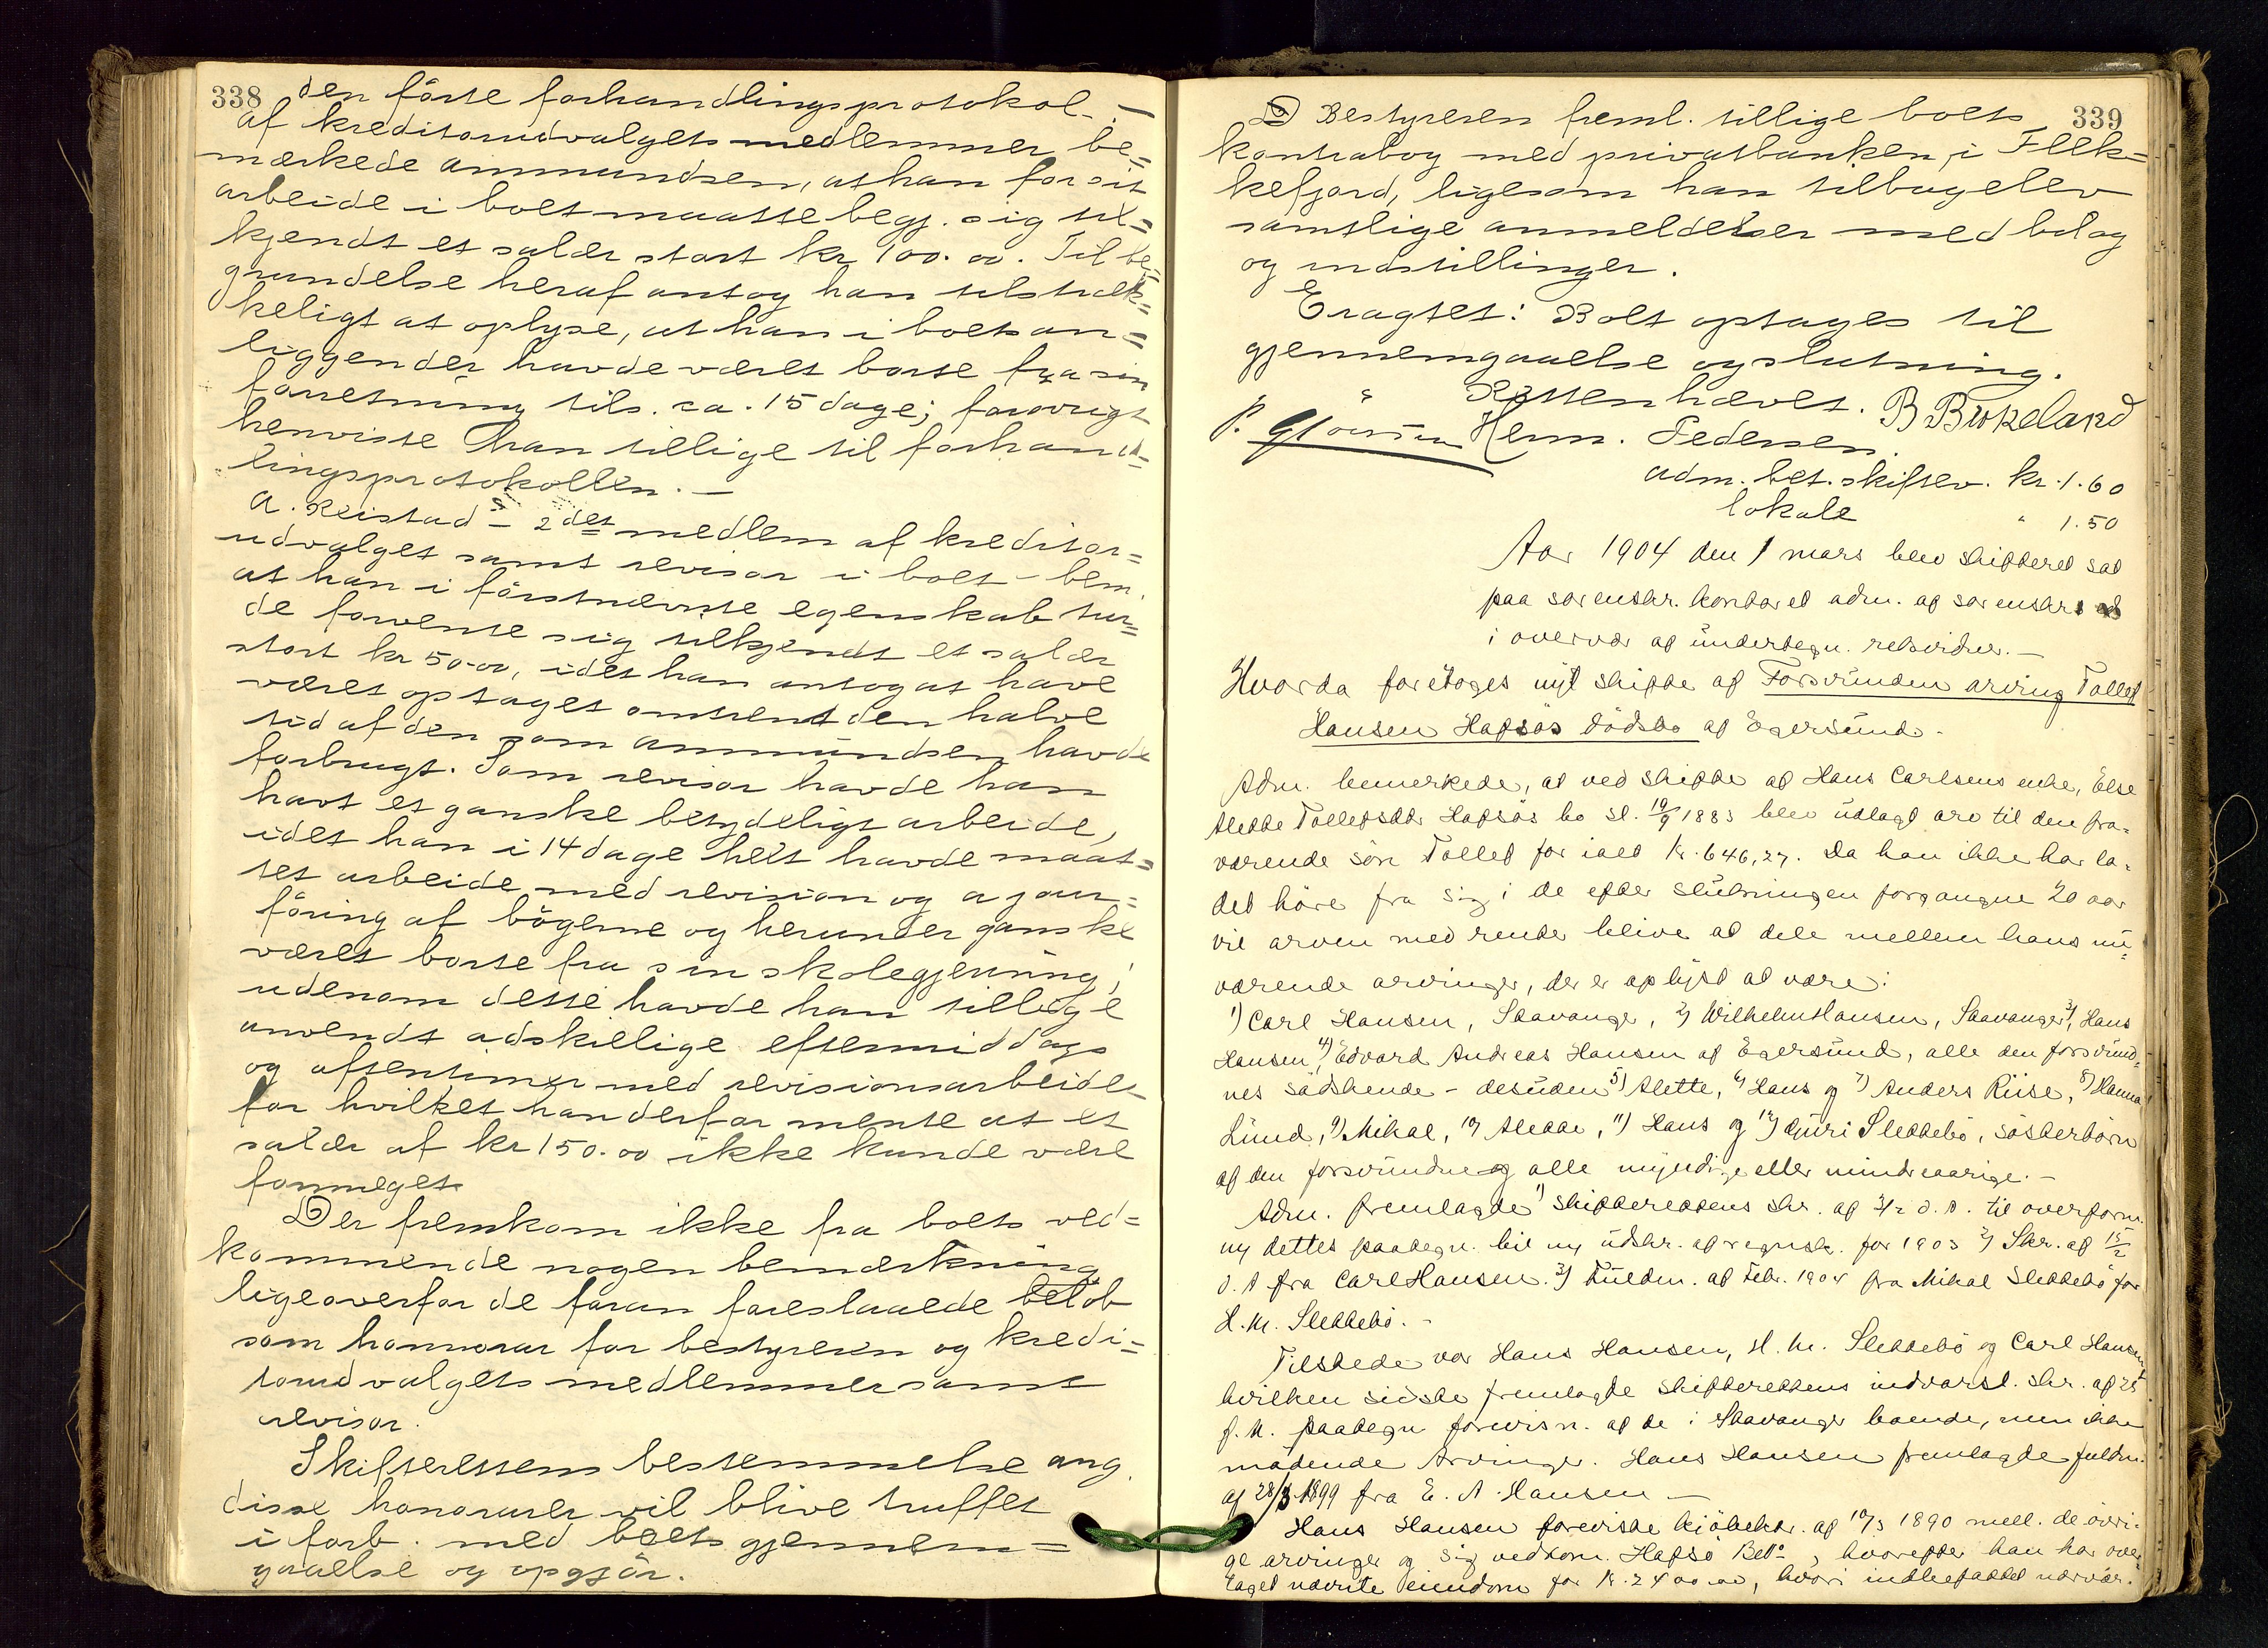 338 den förte forhandlingsprotokol. –
af kreditorudvalgets medlemmer be=
mærkede Ammundsen, at han for sit
arbeide i boet maatte begj. sig til=
kjendt et salær stort kr 100.00. Til be=
grundelse heraf antog han tilstræk=
keligt at oplyse, at han i boets an=
liggender havde været borte fra sin
forretning tils. ca. 15 dage; forøvrigt
henviste han tillige til forhand=
lingsprotokollen. –
A. Reistad – 2det medlem af kreditor=
udvalget samt revisor i boet – bem.
at han i förstnævnte egenskab tur=
de forvente sig tilkjendt et salær
stort kr 50.00, idet han antog at have
været optaget omtrent den halve
tid af den som Ammundsen havde
forbrugt. Som revisor havde han
havt et ganske betydeligt arbeide,
idet han i 14 dage helt havde maat=
tet arbeide med revision og ajour=
föring af bögerne og herunder ganske
været borte fra sin skolegjerning;
udenom dette havde han tillige
anvendt adskillige eftermiddags
og aftentimer med revisionsarbeidet
for hvilket han derfor mente at et
salær af kr 150.00 ikke kunde være
formeget.
Der fremkom ikke fra boets ved=
kommende nogen bemærkning
ligeoverfor de foran foreslaaede belöb
som honnorar for bestyreren og kredi=
torudvalgets medlemmer samt
revisor.
Skifterettens bestemmelse ang.
disse honorarer vil blive truffet
i forb. med boets gjennem=
gaaelse og opgjör.
339
Bestyreren freml. tillige boets
kontrabog med privatbanken i Flek=
kefjord, ligesom han tilbagelev
samtlige anmeldelser med bilag
og indstillinger.
Eragtet: Boet optages til
gjennemgaaelse og slutning.
Retten hævet. B Birkeland
Herm. Pedersen.
adm. bet. skiftev. kr. 1.60
lokale " 1.50
Aar 1904 den 1 mars blev skifteret sat
paa sorenskr. kontoret adm. af sorenskr.
i overvær af undertegn. retsvidner. –
Hvorda foretoges nyt skifte af Forsvunden arving Tollef
Hansen Hafsös dödsbo af Egersund –
Adm. bemerkede, at ved skifte af Hans Carlsens enke, Else
Alette Tollefsdtr Hafsös bo sl. 10/9 1883 blev udlagt arv til den fra=
værende sön Tollef for ialt kr. 646,27. Da han ikke har la=
det höre fra sig i de efter slutningen forgangne 20 aar
vil arven med renter blive at dele mellem hans nu=
værende arvinger, der er oplyst at være:
1) Carl Hansen, Stavanger, 2) Wilhelm Hansen, Stavanger, 3) Hans
Hansen, 4) Edvard Andreas Hansen af Egersund, alle den forsvund=
nes södskende – desuden 5) Alette, 6) Hans og 7) Anders Riise, 8) Hanna
Lund, 9) Mikal, 10) Alette, 11) Hans og 12) Guri Slettebö, sösterbörn
af den forsvundne og alle myndige eller mindreaarige. –
Adm. fremlagde 1) skifterettens skr. af 3/2 d. A. til overform.
og dettes paategn. til ny udskr. af regnsk. for 1903 2) Skr. af 15/2
d. A fra Carl Hansen. 3) Fuldm. af Febr. 1904 fra Mikal Slettebö for
H. M. Slettebö. –
Tilstede var Hans Hansen, H. M. Slettebö og Carl Hansen,
hvilken sidste fremlagde skifterettens indvarsl. skr. af 25
f. M. paategn forevisn. af de i Stavanger boende, men ikke
mödende Arvinger. Hans Hansen fremlagde fuldm.
af 28/3 1899 fra E. A. Hansen –
Hans Hansen foreviste kjöbektr. af 10/3 1890 mell. de övri=
ge arvinger og sig vedkom. Hafsö , hvorefter han har over
taget nævnte eiendom for kr. 2400.00, hvori indbefattet nærvær.